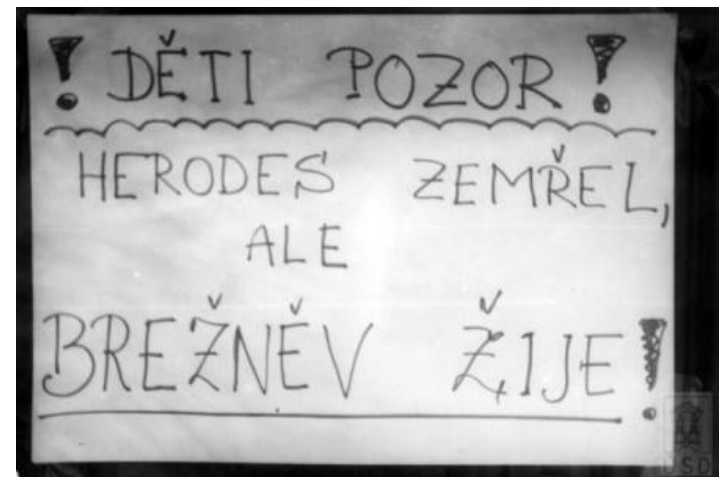 ! DĚTI POZOR !
HERODES ZEMŘEL,
ALE
BREŽNĚV ŽIJE!
ÚSD